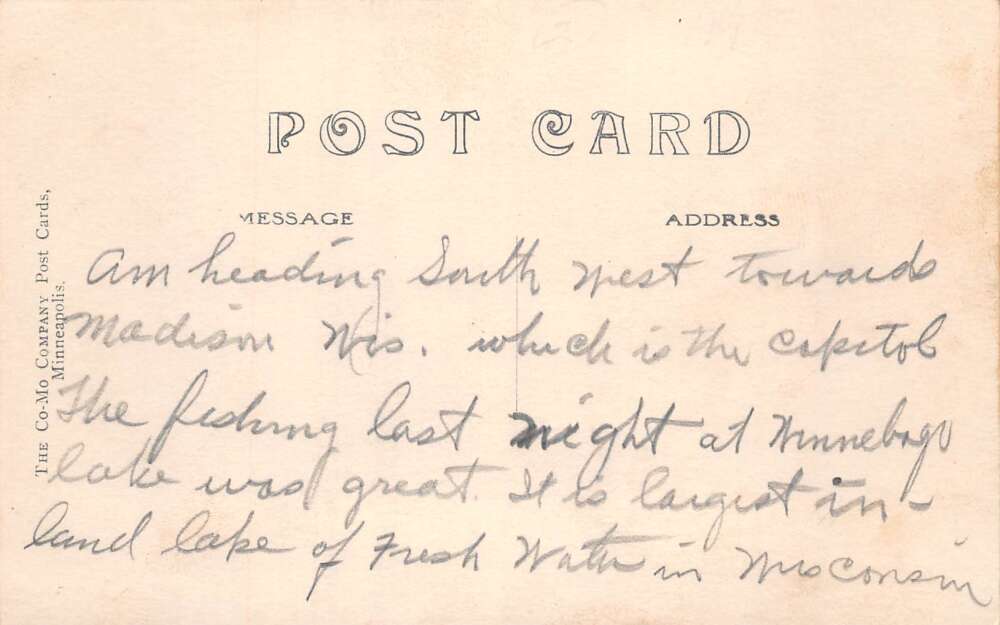 POST CARD
MESSAGE ADDRESS
THE CO-MO COMPANY Post Cards,
Minneapolis.
Am heading South West towards
Madison Wis. which is the capitol
The fishing last night at Winnebago
lake was great. It is largest in-
land lake of Fresh Water in Wisconsin